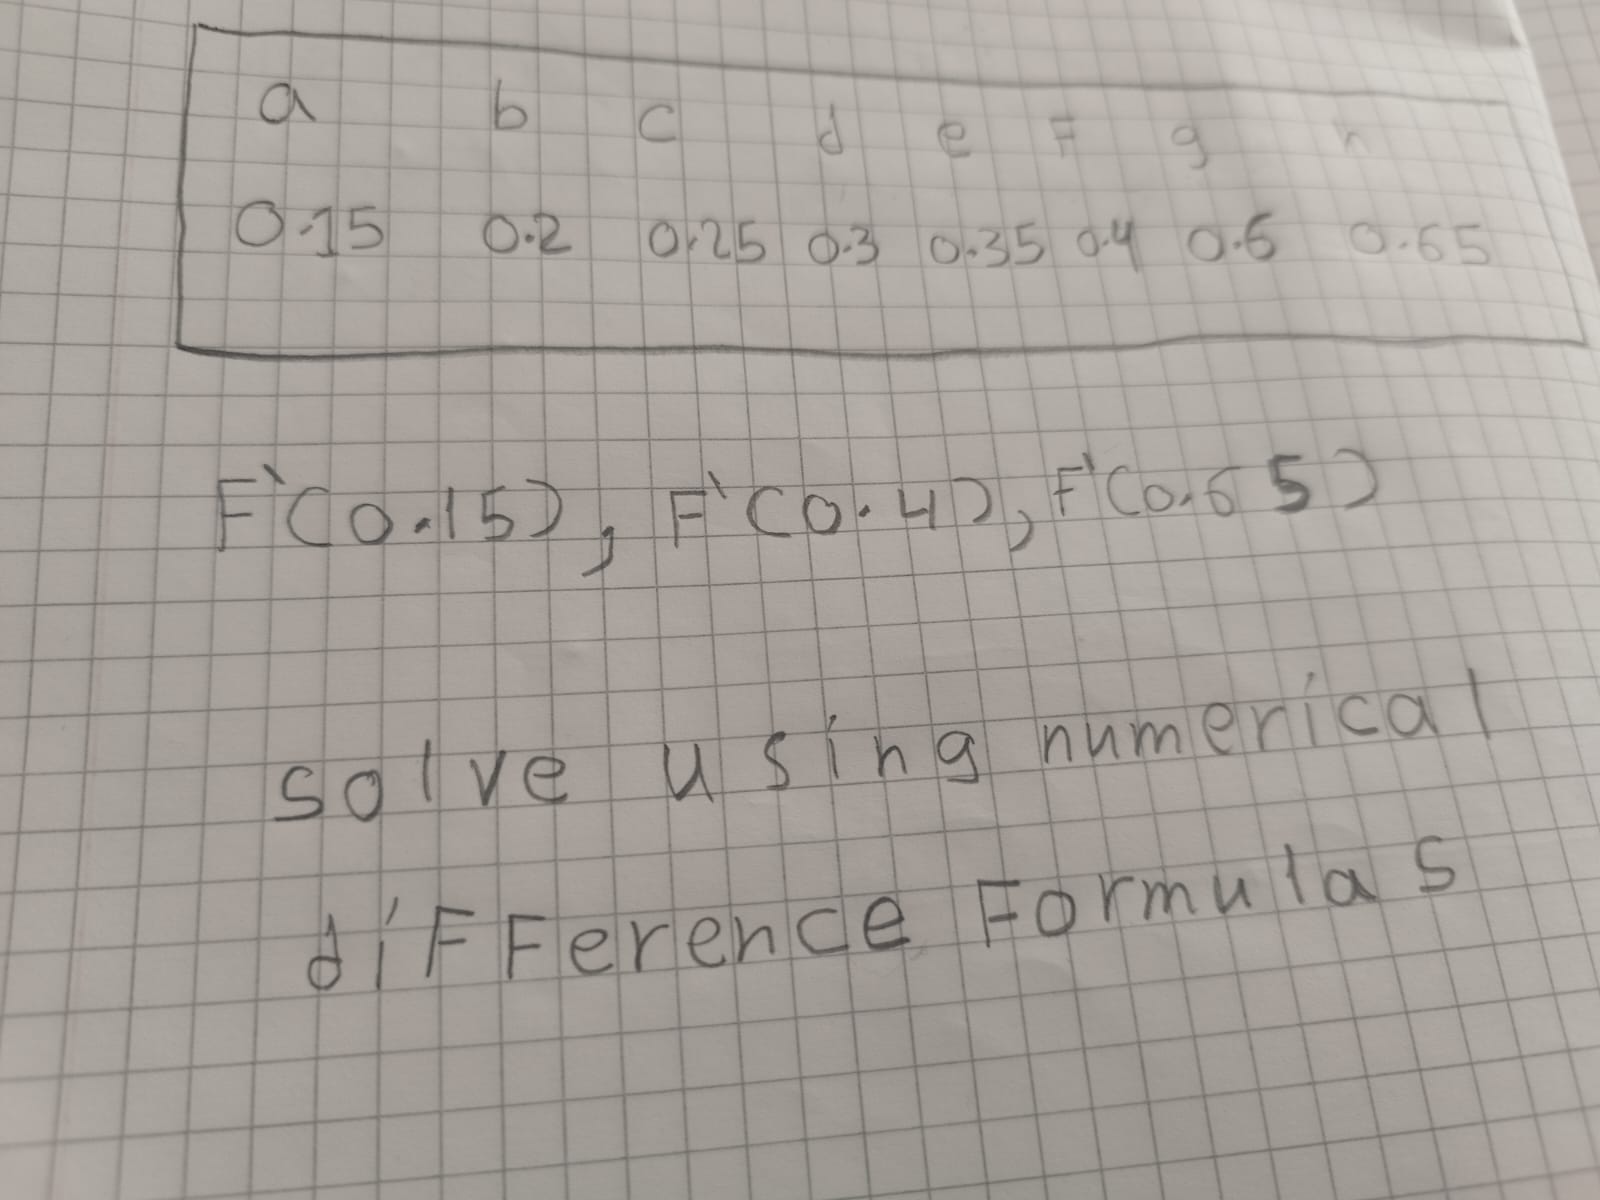 a b c d e F g h
0.15 0.2 0.25 0.3 0.35 0.4 0.6 0.65
F'(0.15), F'(0.4), F'(0.65)
solve using numerical
difference Formulas